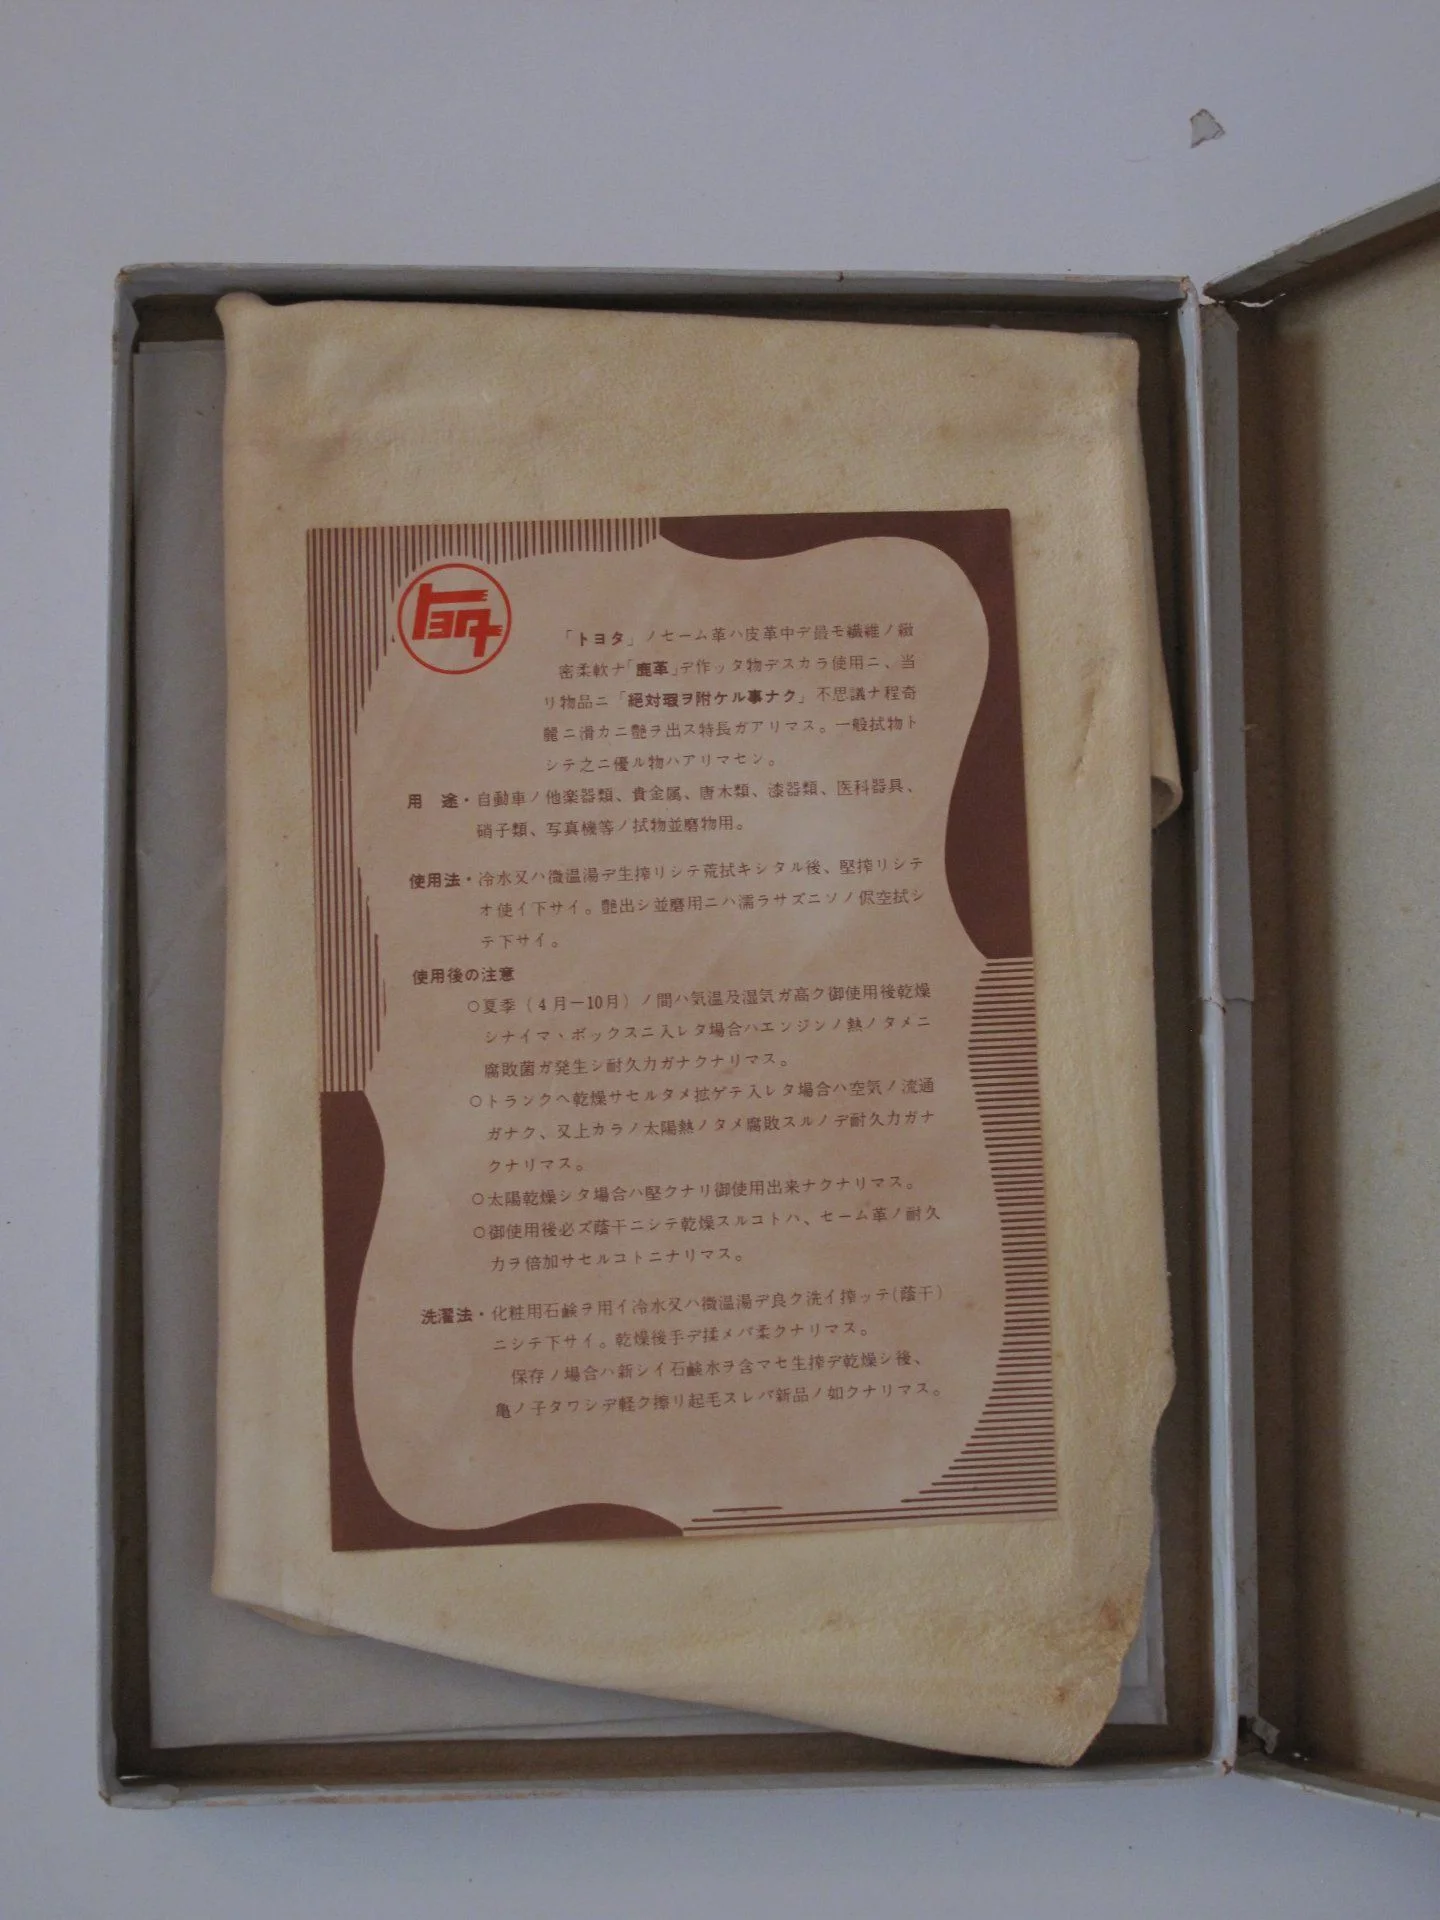 トヨタ
「トヨタ」ノセーム革ハ皮革中デ最モ繊維ノ緻
密柔軟ナ「鹿革」デ作ッタ物デスカラ使用ニ、当
リ物品ニ「絶対瑕ヲ附ケル事ナク」不思議ナ程奇
麗ニ滑カニ艶ヲ出ス特長ガアリマス。一般拭物ト
シテ之ニ優ル物ハアリマセン。
用　途・自動車ノ他楽器類、貴金属、唐木類、漆器類、医科器具、
硝子類、写真機等ノ拭物並磨物用。
使用法・冷水又ハ微温湯デ生搾リシテ荒拭キシタル後、堅搾リシテ
オ使イ下サイ。艶出シ並磨用ニハ濡ラサズニソノ侭空拭シ
テ下サイ。
使用後の注意
○夏季（4月ー10月）ノ間ハ気温及湿気ガ高ク御使用後乾燥
シナイマヽボックスニ入レタ場合ハエンジンノ熱ノタメニ
腐敗菌ガ発生シ耐久力ガナクナリマス。
○トランクヘ乾燥サセルタメ拡ゲテ入レタ場合ハ空気ノ流通
ガナク、又上カラノ太陽熱ノタメ腐敗スルノデ耐久力ガナ
クナリマス。
○太陽乾燥シタ場合ハ堅クナリ御使用出来ナクナリマス。
○御使用後必ズ蔭干ニシテ乾燥スルコトハ、セーム革ノ耐久
力ヲ倍加サセルコトニナリマス。
洗濯法・化粧用石鹸ヲ用イ冷水又ハ微温湯デ良ク洗イ搾ッテ(蔭干)
ニシテ下サイ。乾燥後手デ揉メバ柔クナリマス。
保存ノ場合ハ新シイ石鹸水ヲ含マセ生搾デ乾燥シ後、
亀ノ子タワシデ軽ク擦リ起毛スレバ新品ノ如クナリマス。